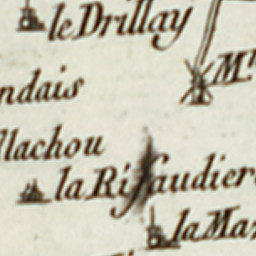 le Drillay
M.
ndais
llachou
la Rifaudier
la Ma